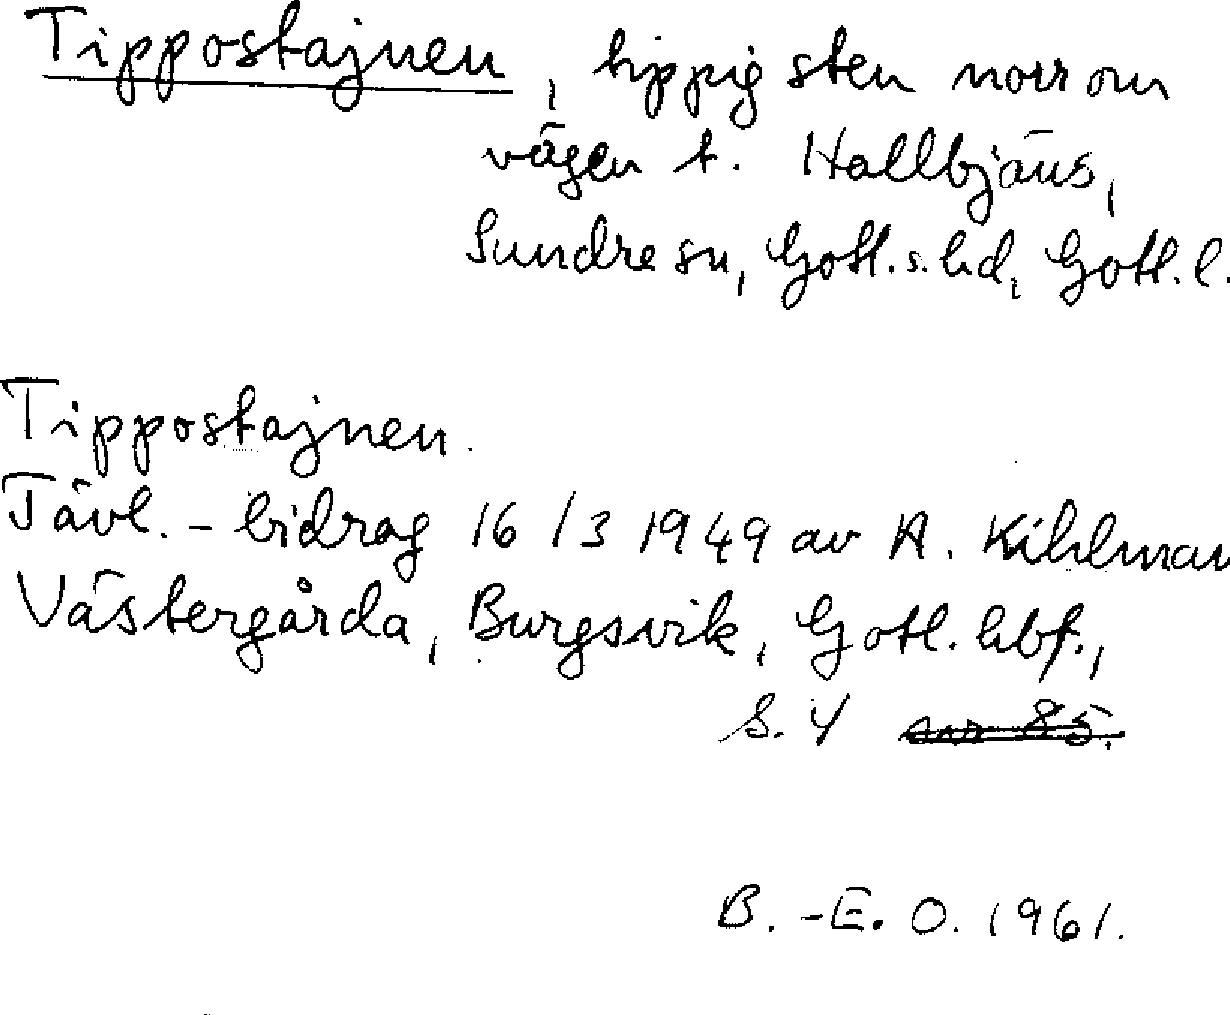 Tippostajnen, tippig sten norr om
vägen t. Hallbjäns,
Sundre sn, Gotl. s. hd, Gotl. l.
Tippostajnen.
Tävl. - bidrag 16/3 1949 av A. Kihlman
Västergårda, Burgsvik, Gotl. hbf.,
S. 4 snr 85.
B.-E. O. 1961.